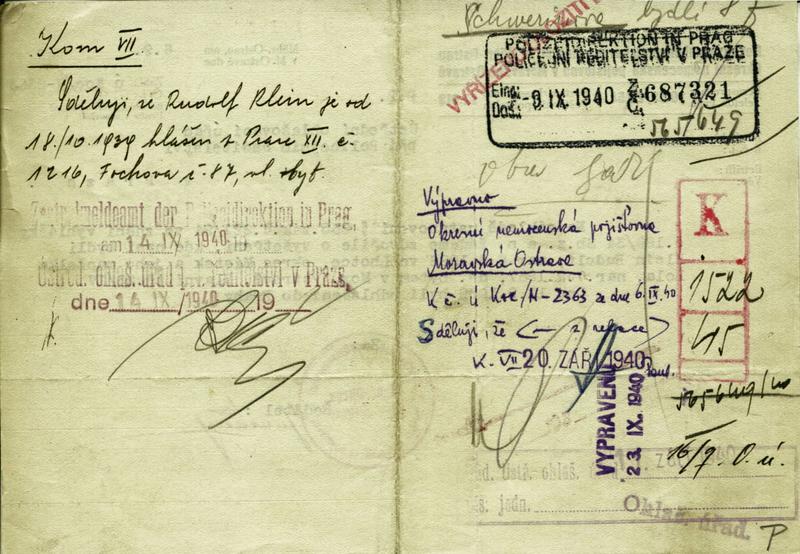 Kom VII.
Sděluji, že Rudolf Klein je od
18./10. 1939 hlášen v Praze XII. č.
1216, Fochova č. 87, vl. byt.
Zentralmeldeamt der Polizeidirektion in Prag,
am 14 IX 1940 19
Ústřed. ohlaš. úřad ředitelství v Praze,
dne 14 IX /1940 19
K.
bydlí
VYŘÍZENO
POLIZEIDIREKTION IN PRAG
POLICEJNÍ ŘEDITELSTVÍ V PRAZE
Eing.:
Došl.: -9 IX 1940 Z. Č. 687321
565/649
Výpravno
Okresní nemocenská pojišťovna
Moravská Ostrava
K č. ú Koc/H-2363 ze dne 6. IX. 40
Sděluji, že (— z relace —)
K. VII 20. ZÁŘÍ 1940
VYPRAVENO
23. IX. 1940
K
1522
45
16/9. O. ú.
Ústř. ohlaš.
jedn.
Ohlaš. úřad.
P